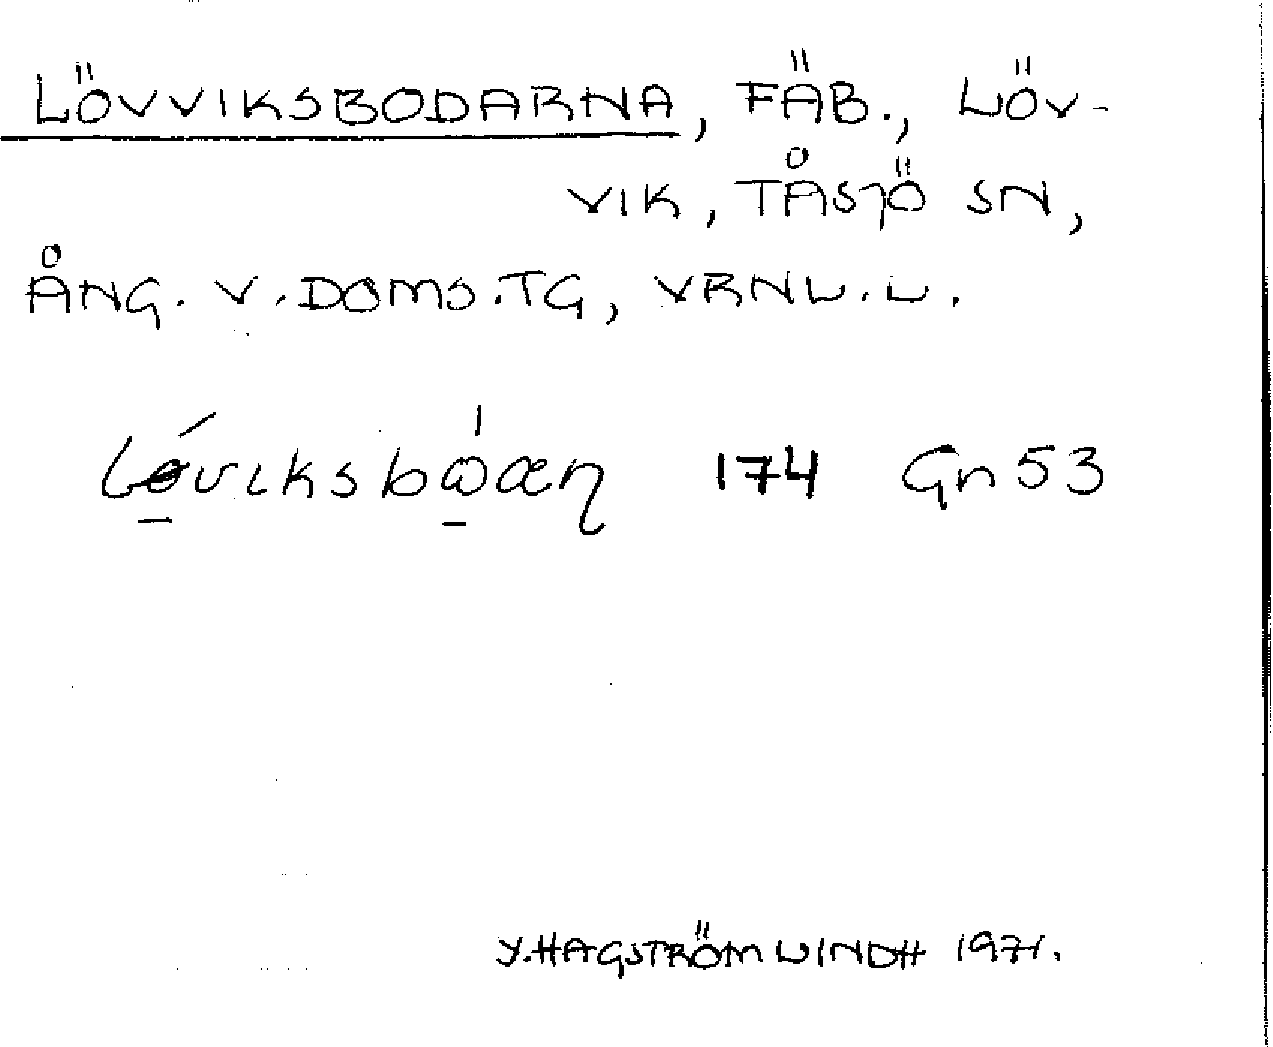 LÖVVIKSBODARNA, FÄB., LÖV-
VIK, TÅSJÖ SN,
ÅNG. V. DOMS.TG, VRNL.L.
174 Gn 53
Y. HAGSTRÖM WINDH 1971.